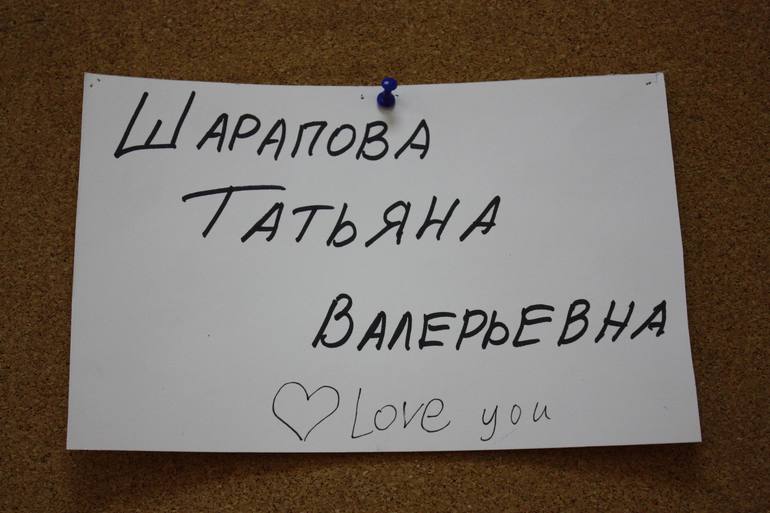 Шарапова
Татьяна
Валерьевна
Love you